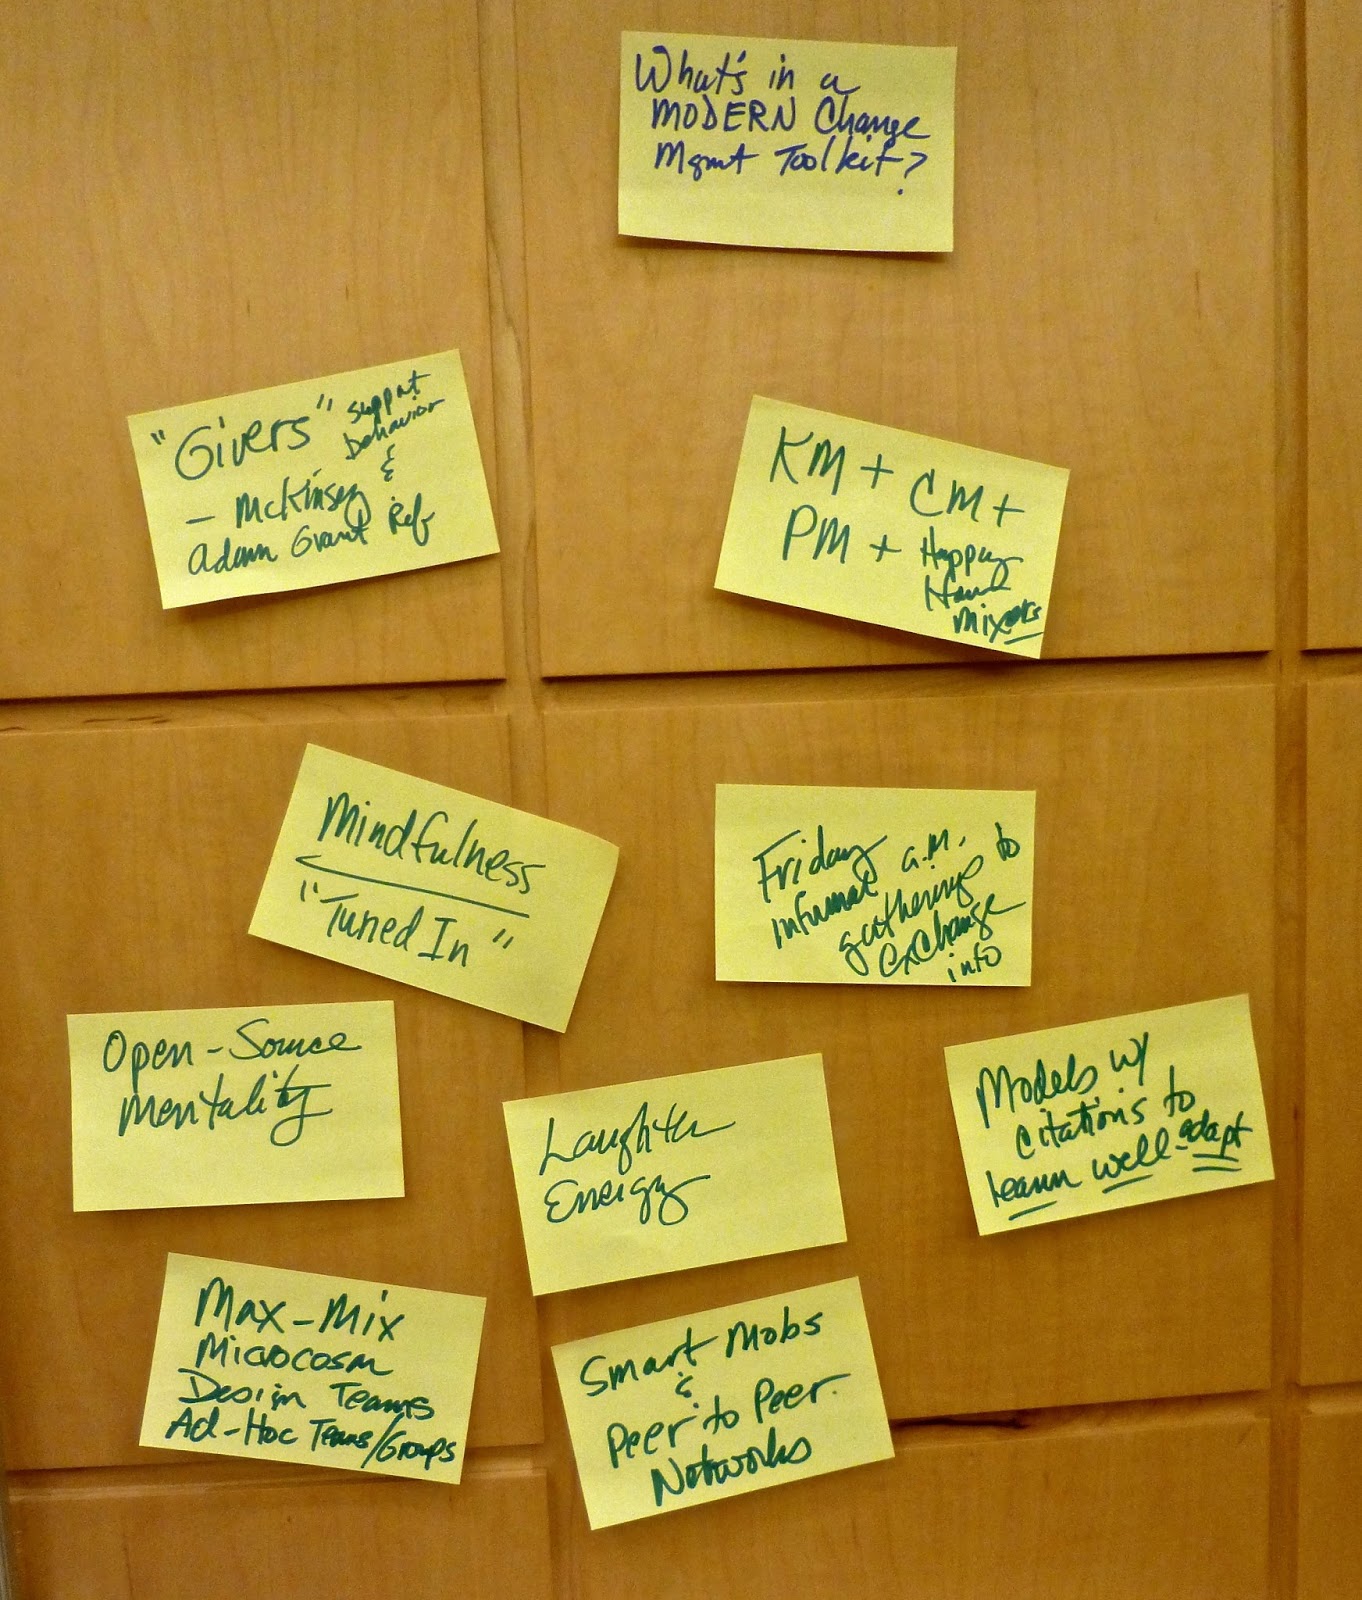 What's in a
MODERN Change
Mgmt Toolkit?
"Givers" support
behavior
&
- McKinsey
Adam Grant Ref
KM + CM +
PM + Happy
Hour
Mixers
Mindfulness
"Tuned In"
Friday a.m.
informal
gatherings to
exchange
info
Open-Source
Mentality
Laughter
Energy
Models w/
citations to
learn well-adapt
Max-Mix
Microcosm
Design Teams
Ad-Hoc Teams/Groups
Smart Mobs
&
Peer to Peer
Networks